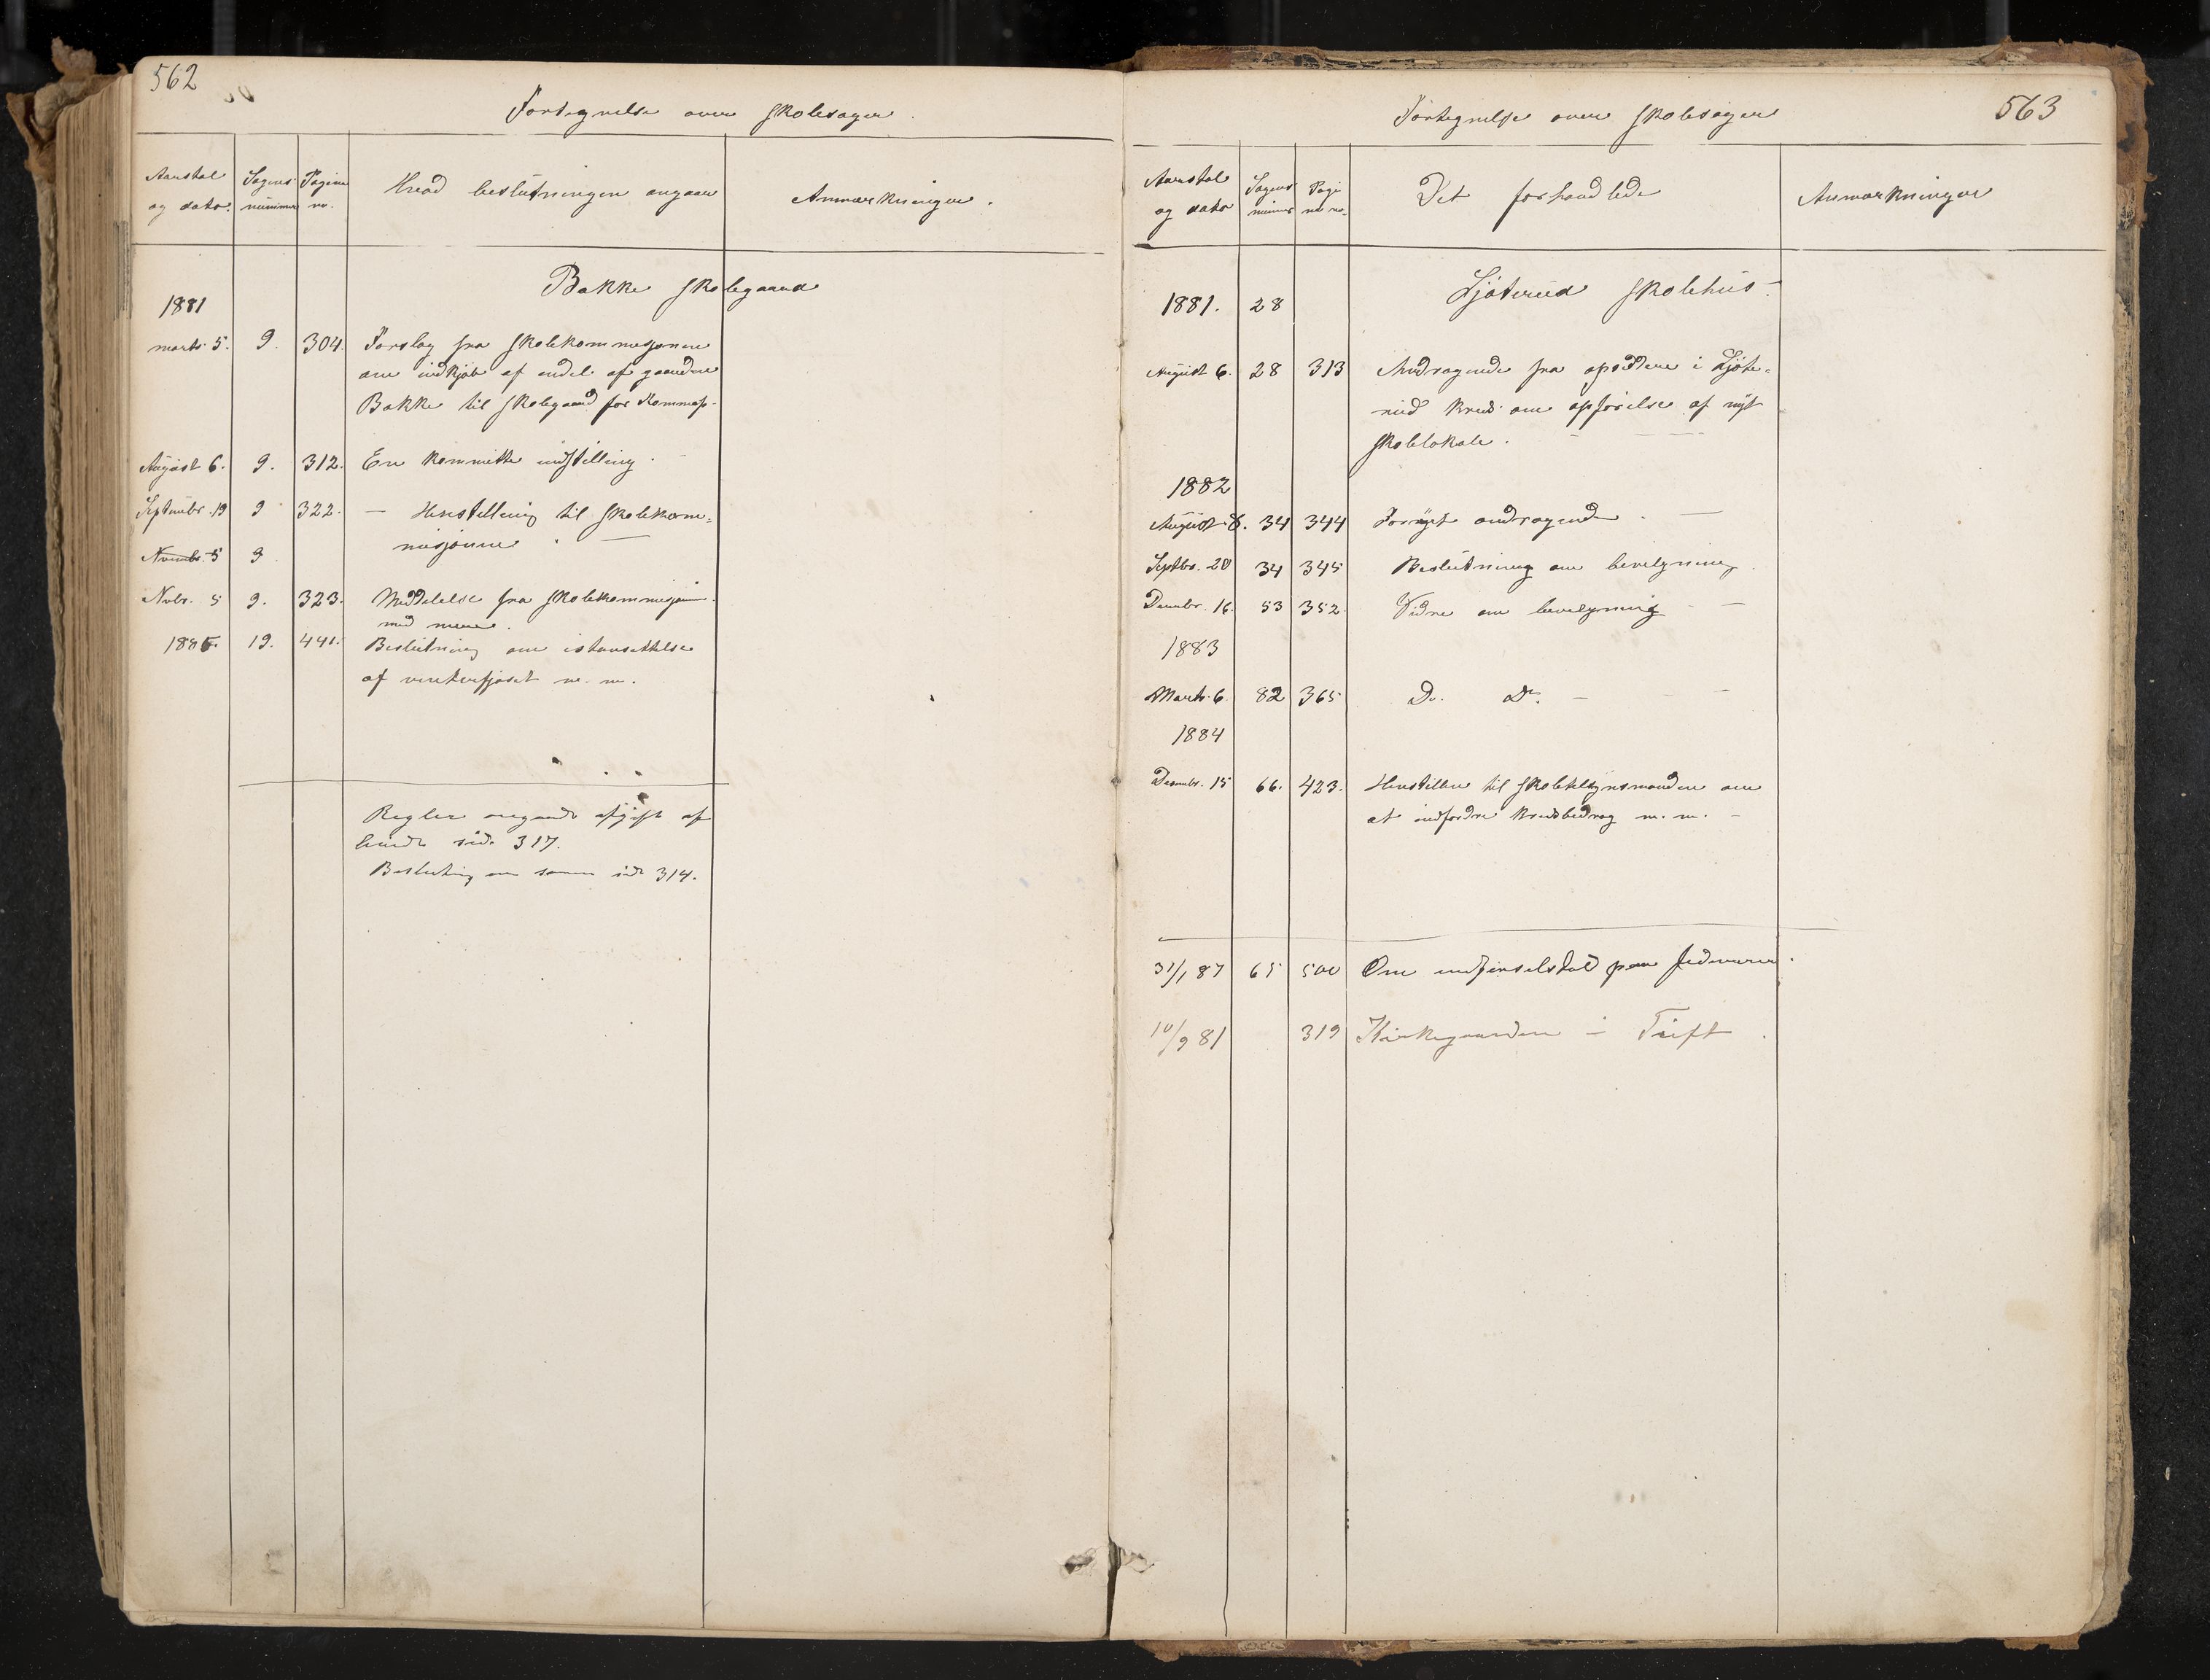 562
Fortegnelse over skolesager.
Aarstal og dato. Sagens nummer Pagina no. Hvad beslutningen angaar Anmærkninger.
Bakke skolegaard
1881
marts 5. 9. 304. Forslag fra skolekommisjonen
om indkjøb af endel af gaarden
Bakke til skolegaard for
August 6. 9. 312. En kommitte indstilling.
Septembr. 19 9 322. — Henstilling til skolekom-
misjonen. —
Novembr. 5 9
Nvbr. 5 9. 323. Meddelelse fra skolekommisjonen
med mere.
1885. 19. 441. Beslutning om istansættelse
af m. m.
Regler angaaende afgift af
hunde side 317.
Beslutning om samme side 314.
563
Fortegnelse over skolesager
Aarstal og dato Sagens nummer Pagina no. Det forhandlede Anmærkninger
Ljøterud skolehus.
1881. 28
August 6. 28 313 Andragende fra opsiddere i Ljøte-
rud kreds om opførelse af nyt
skolelokale. —
1882
August 8. 34 344 Fornyet andragende. —
Septbr. 20 34 345 Beslutning om bevilgning.
Decembr. 16. 53 352 Vidre om bevilgning —
1883
Marts 6. 82 365 Do. Do. —
1884
Decembr. 15 66. 423. Henstillen til skoletilsynsmanden om
at indfordre kredsbedrag m. m. —
31/1 87 65 500 Om indførselstold paa fedevarer.
10/9 81 319 Kirkegaarden i Tuft.